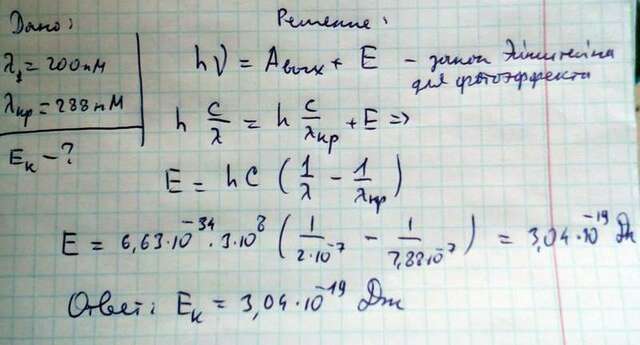 Дано:
λ₁ = 200 нм
λкр = 288 нм
Eк - ?
Решение:
hν = Aвых + E - закон Эйнштейна
для фотоэффекта
h c/λ = h c/λкр + E =>
E = hc (1/λ - 1/λкр)
E = 6,63·10⁻³⁴ · 3·10⁸ (1/2·10⁻⁷ - 1/2,88·10⁻⁷) = 3,04·10⁻¹⁹ Дж
Ответ: Eк = 3,04·10⁻¹⁹ Дж